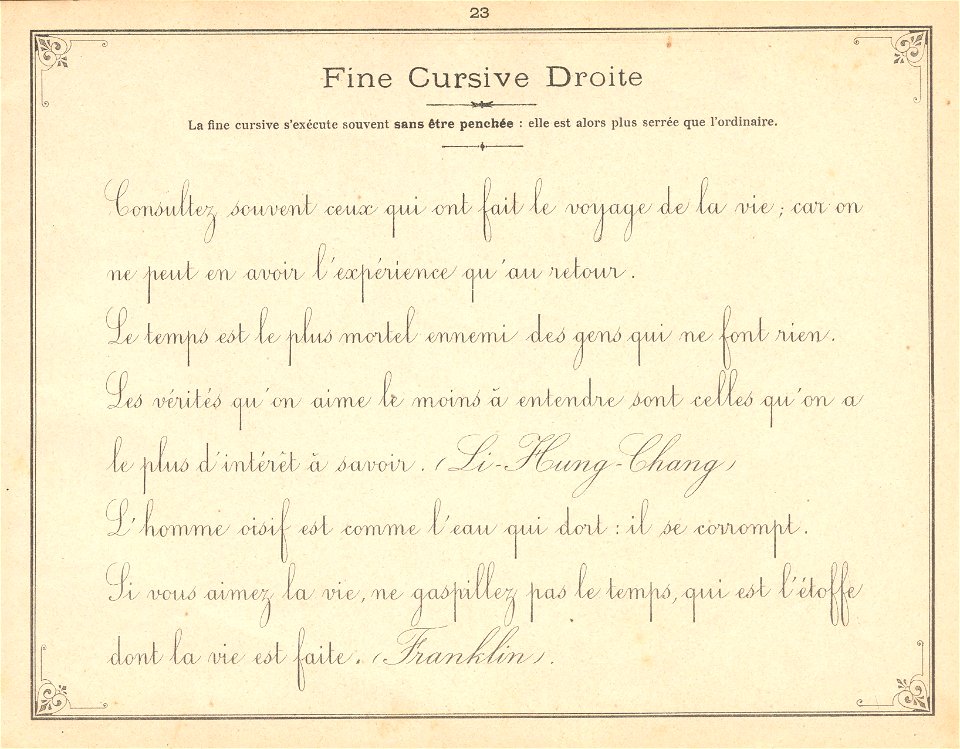 23
Fine Cursive Droite
La fine cursive s'exécute souvent sans être penchée : elle est alors plus serrée que l'ordinaire.
Consultez souvent ceux qui ont fait le voyage de la vie ; car on
ne peut en avoir l'expérience qu'au retour.
Le temps est le plus mortel ennemi des gens qui ne font rien.
Les vérités qu'on aime le moins à entendre sont celles qu'on a
le plus d'intérêt à savoir. (Li-Hung-Chang)
L'homme oisif est comme l'eau qui dort : il se corrompt.
Si vous aimez la vie, ne gaspillez pas le temps, qui est l'étoffe
dont la vie est faite. (Franklin).